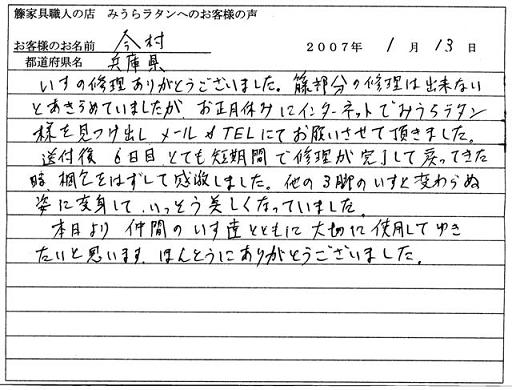 籐家具職人の店　みうらラタンへのお客様の声
お客様のお名前　今村　2007年 1月 13日
都道府県名　兵庫県
いすの修理ありがとうございました。籐部分の修理は出来ない
とあきらめていましたが お正月休みにインターネットでみうらラタン
様を見つけ出し メールやTELにてお願いさせて頂きました。
送付後 6日目 とても短期間で修理が完了して戻ってきた
時 梱包をはずして感激しました。他の3脚のいすと変わらぬ
姿に変身して、いっそう美しくなっていました。
本日より 仲間のいす達とともに大切に使用してゆき
たいと思います。ほんとうにありがとうございました。